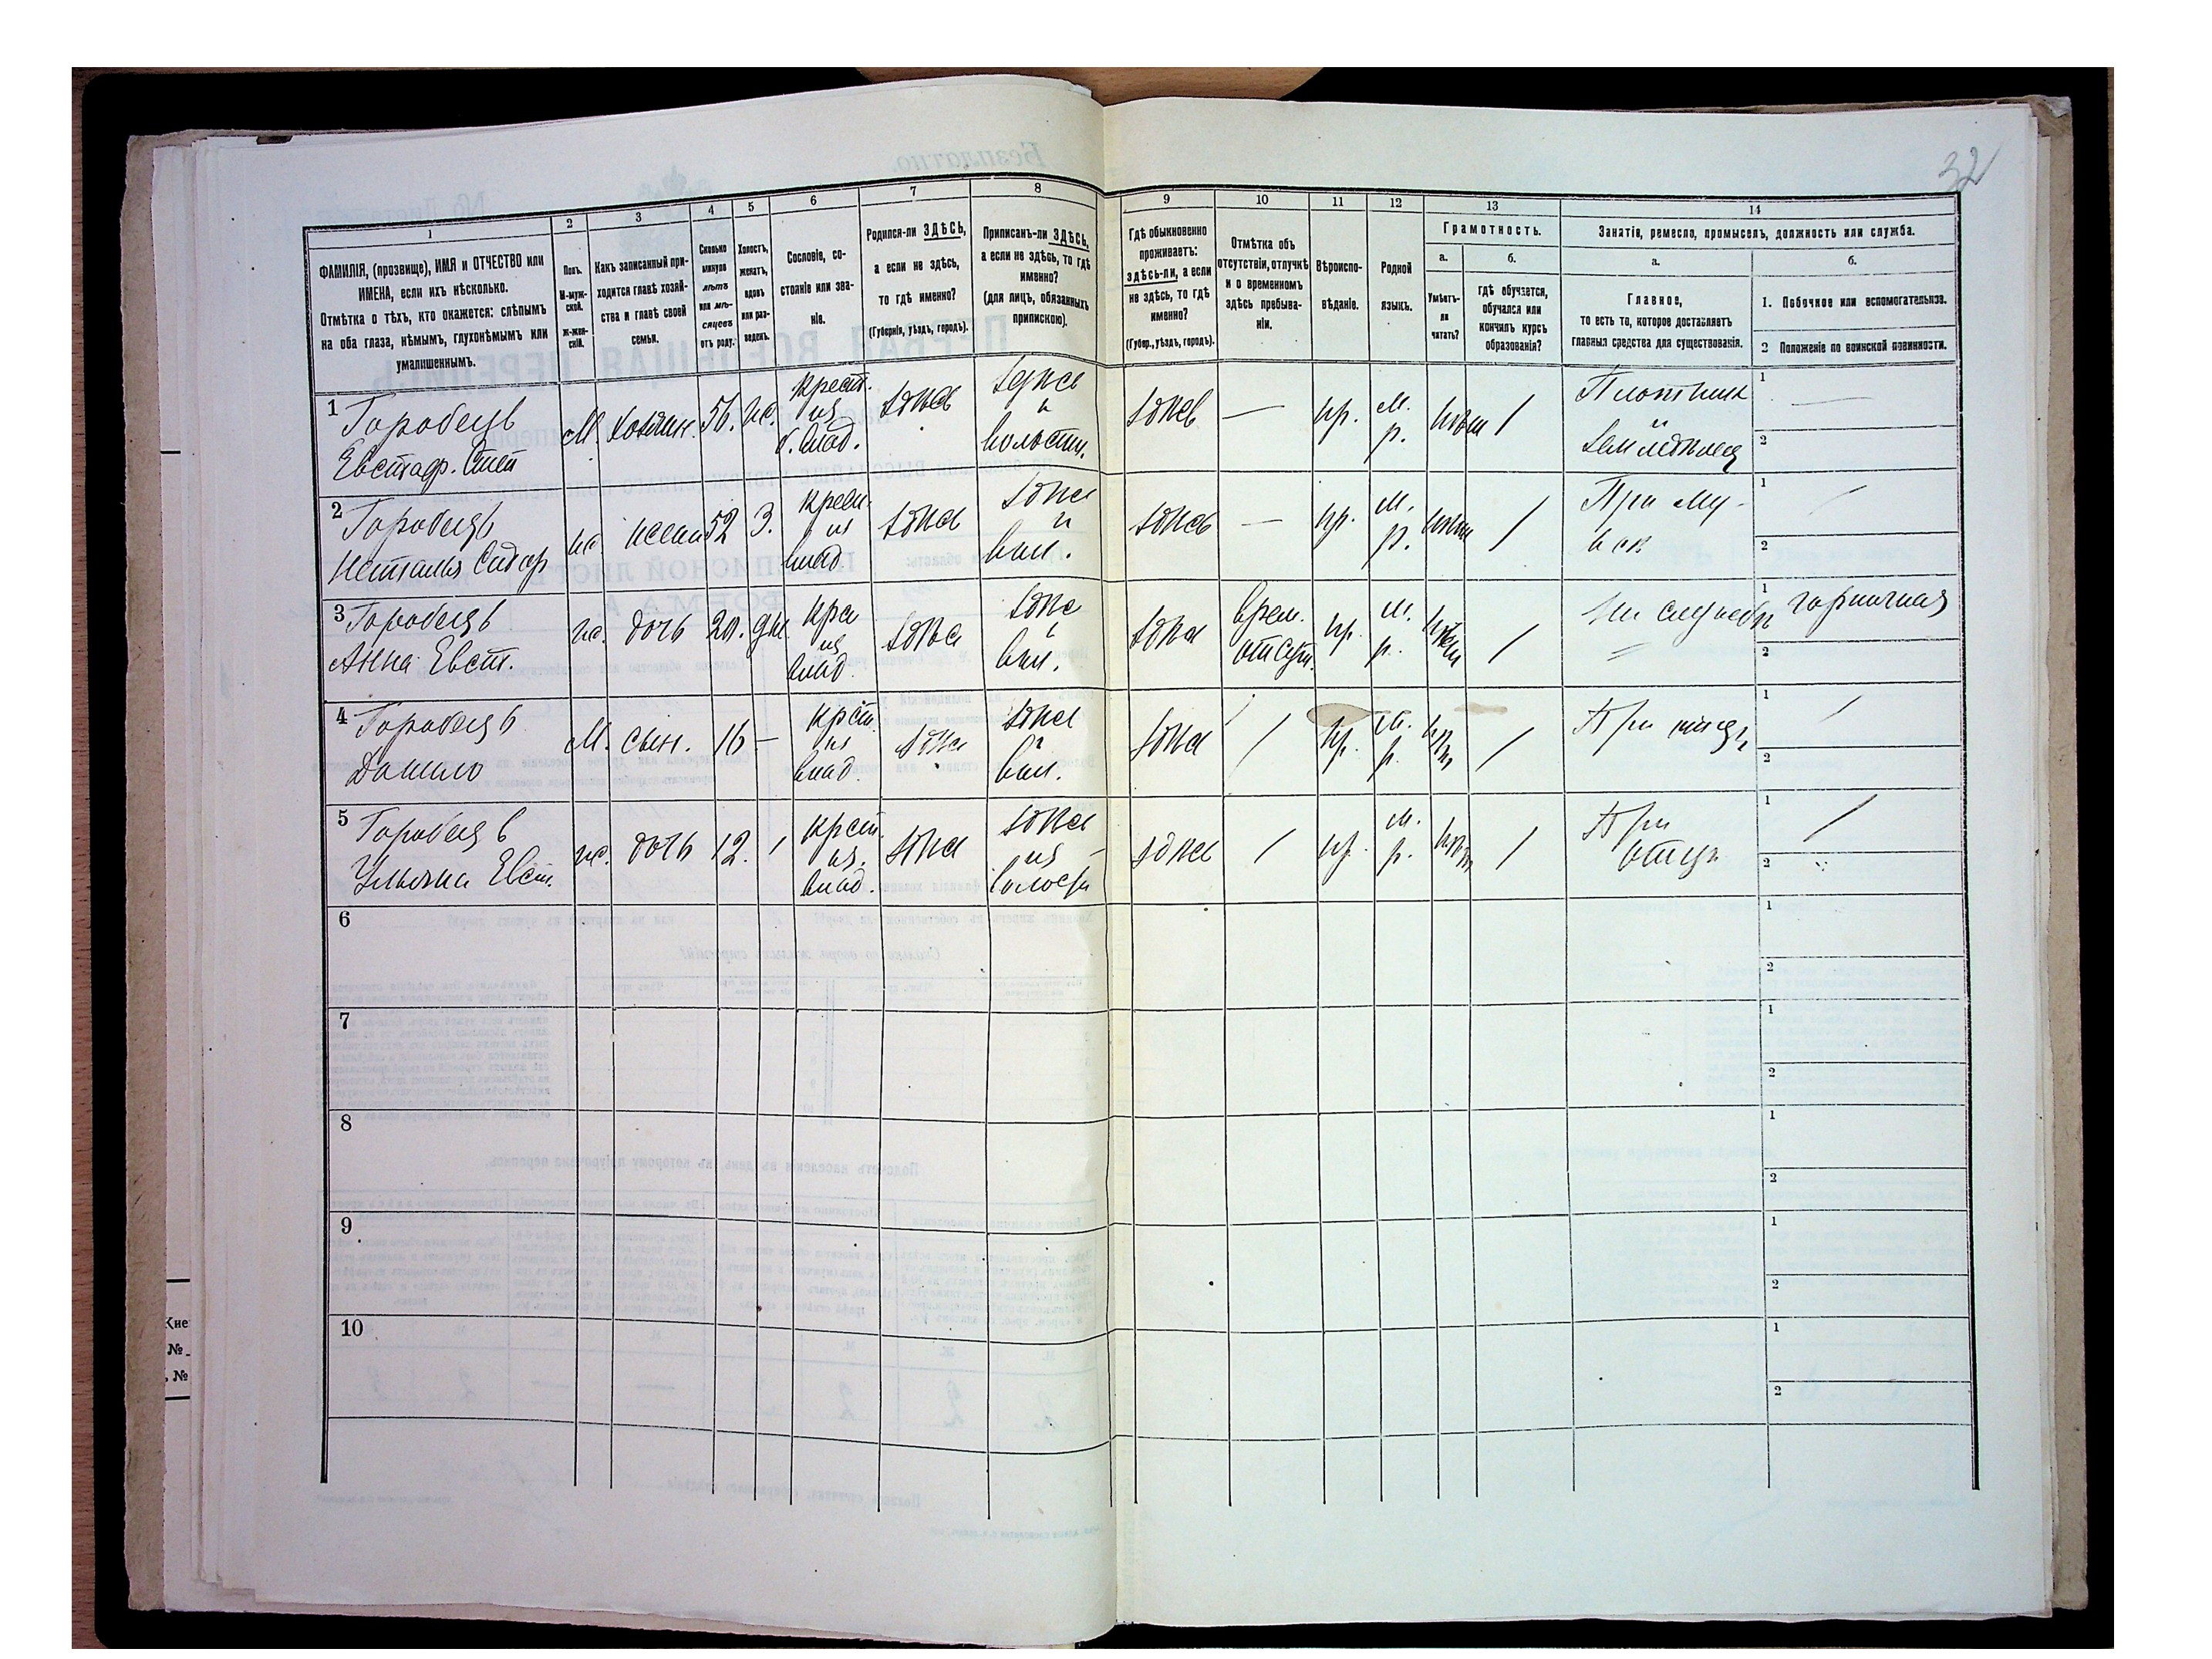 32
1 2 3 4 5 6 7 8 9 10 11 12 13 14
ФАМИЛІЯ, (прозвище), ИМЯ и ОТЧЕСТВО или
ИМЕНА, если ихъ нѣсколько.
Отмѣтка о тѣхъ, кто окажется: слѣпымъ
на оба глаза, нѣмымъ, глухонѣмымъ или
умалишеннымъ.
Полъ.
М-муж-
ской.
Ж-жен-
скій.
Какъ записанный при-
ходится главѣ хозяй-
ства и главѣ своей
семьи.
Сколько
минуло
лѣтъ
или мѣ-
сяцевъ
отъ роду.
Холостъ,
женатъ,
вдовъ
или раз-
веденъ.
Сословіе, со-
стояніе или зва-
ніе.
Родился-ли ЗДѢСЬ,
а если не здѣсь,
то гдѣ именно?
(Губернія, уѣздъ, городъ).
Приписанъ-ли ЗДѢСЬ,
а если не здѣсь, то гдѣ
именно?
(для лицъ, обязанныхъ
припискою).
Гдѣ обыкновенно
проживаетъ:
здѣсь-ли, а если
не здѣсь, то гдѣ
именно?
(Губер., уѣздъ, городъ).
Отмѣтка объ
отсутствіи, отлучкѣ
и о временномъ
здѣсь пребыва-
ніи.
Вѣроиспо-
вѣданіе.
Родной
языкъ.
Грамотность.
а.
Умѣетъ-
ли
читать?
б.
гдѣ обучается,
обучался или
кончилъ курсъ
образованія?
Занятіе, ремесло, промыселъ, должность или служба.
а.
Главное,
то есть то, которое доставляетъ
главныя средства для существованія.
б.
1. Побочное или вспомогательное.
2 Положеніе по воинской повинности.
1 Горобецъ
Евстаф.
М. хозяин. 56. же.
крест.
из
б. влад.
здѣсь
здѣсь
в
волости.
здѣсь — пр.
м.
р.
нѣт /
Плотник
и
землѣдѣлец
1 —
2
2 Горобецъ
Наталья Сидор
же жена 52 З.
крес.
из
влад.
здѣсь
здѣсь
в
вол.
здѣсь — пр.
м.
р.
нѣт /
При му-
жѣ
1 /
2
3 Горобецъ
Анна Евст.
же. дочь 20. дѣв.
кре
из
влад.
здѣсь
здѣс
в
вол.
здѣсь
врем.
отсут.
пр.
м.
р.
нѣт /
На службѣ
1 горничная
2
4 Горобецъ
Данило
М. сын. 16 —
крст.
из
влад.
здѣсь
здѣсь
в
вол.
здѣсь / пр.
м.
р.
нѣт /
При отцѣ
1 /
2
5 Горобецъ
Ульяна Евст.
же. дочь 12. /
крст.
из.
влад.
здѣсь
здѣсь
из
волости
здѣсь / пр.
м.
р.
нѣт /
При
отцѣ
1 /
2
6
1
2
7
1
2
8
1
2
9
1
2
10
1
2
Кие
№
№